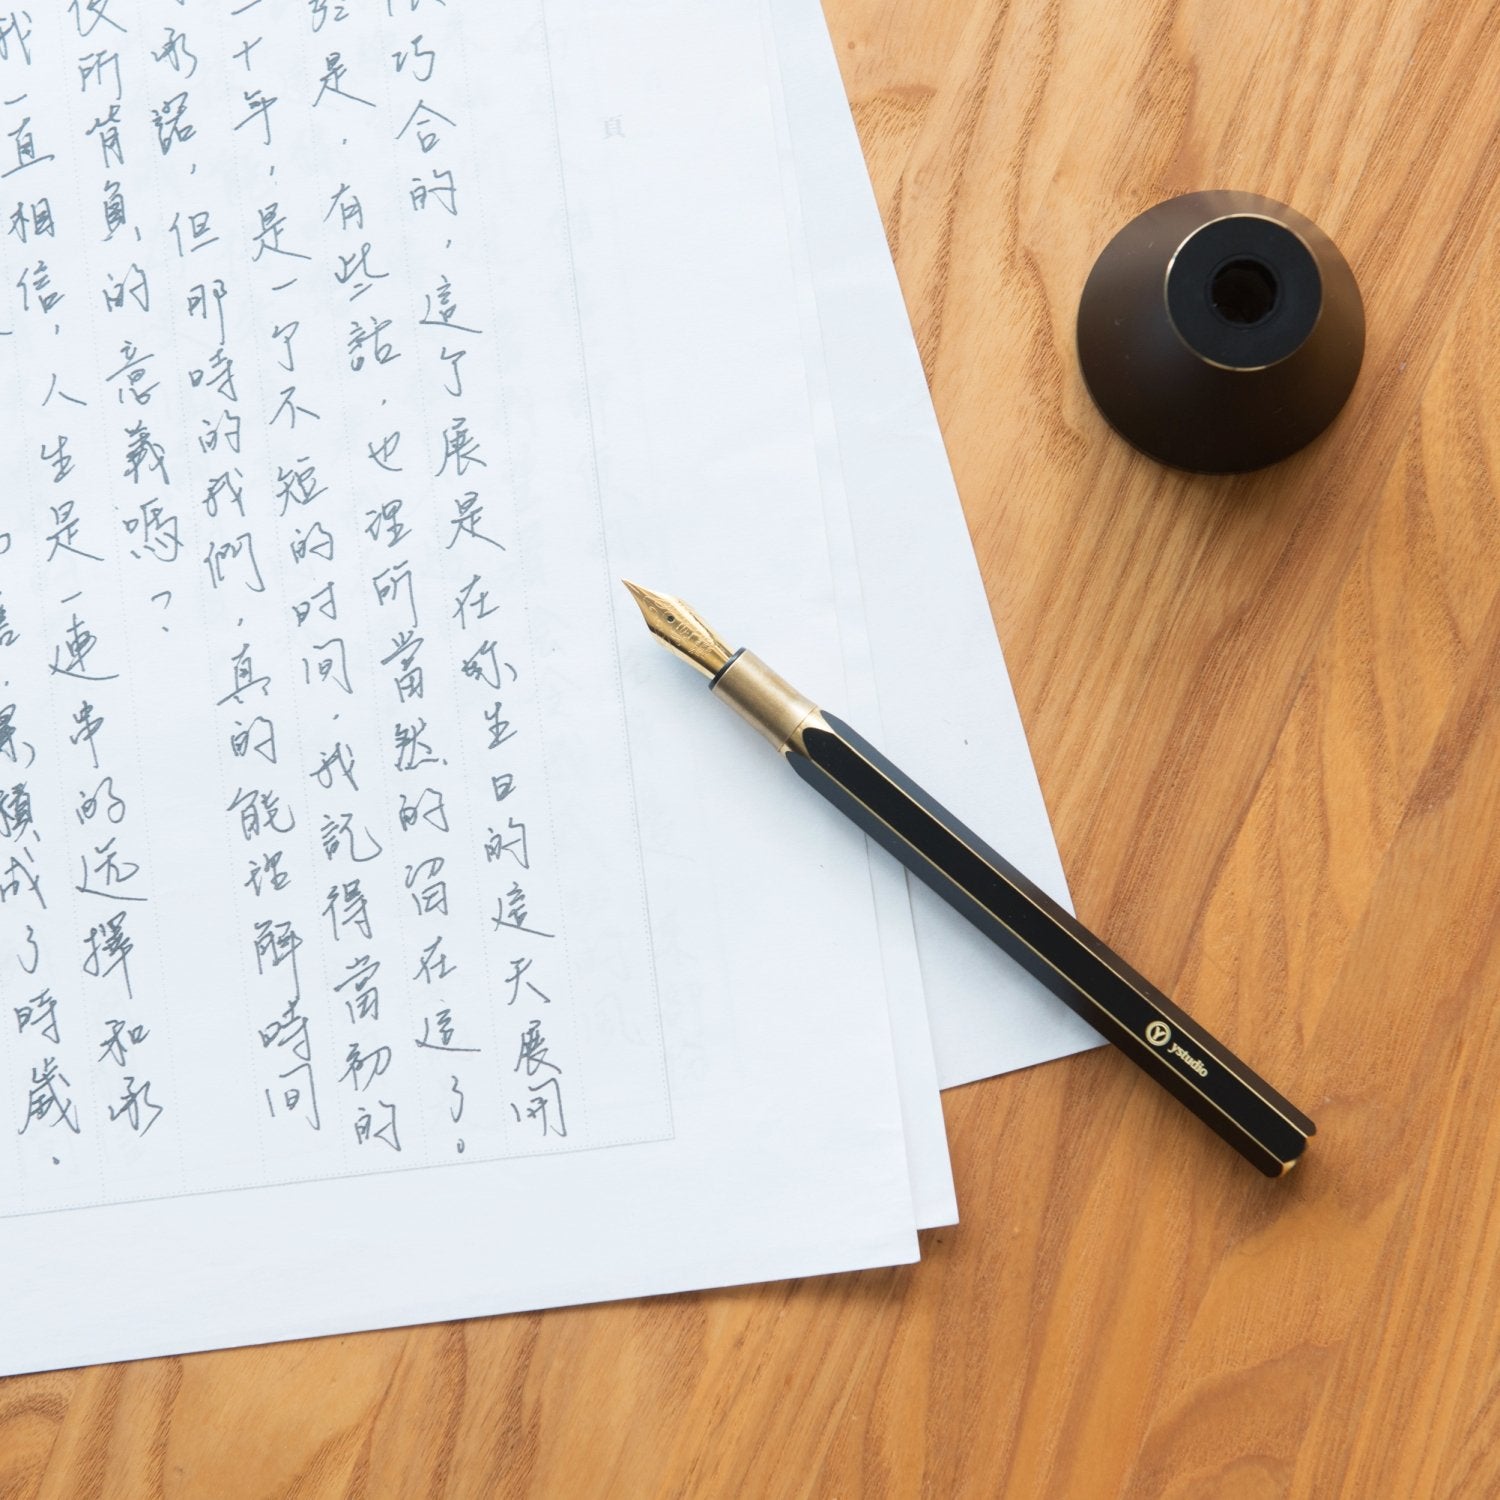 巧合的，這个展是在妳生日的這天展開
是，有些話，也理所當然的留在這了。
二十年，是一个不短的时间，我記得當初的
承諾，但那時的我們，真的能理解時間
所背負的意義嗎？
我一直相信，人生是一連串的选擇和承
累積成了時歲。
頁
ystudio